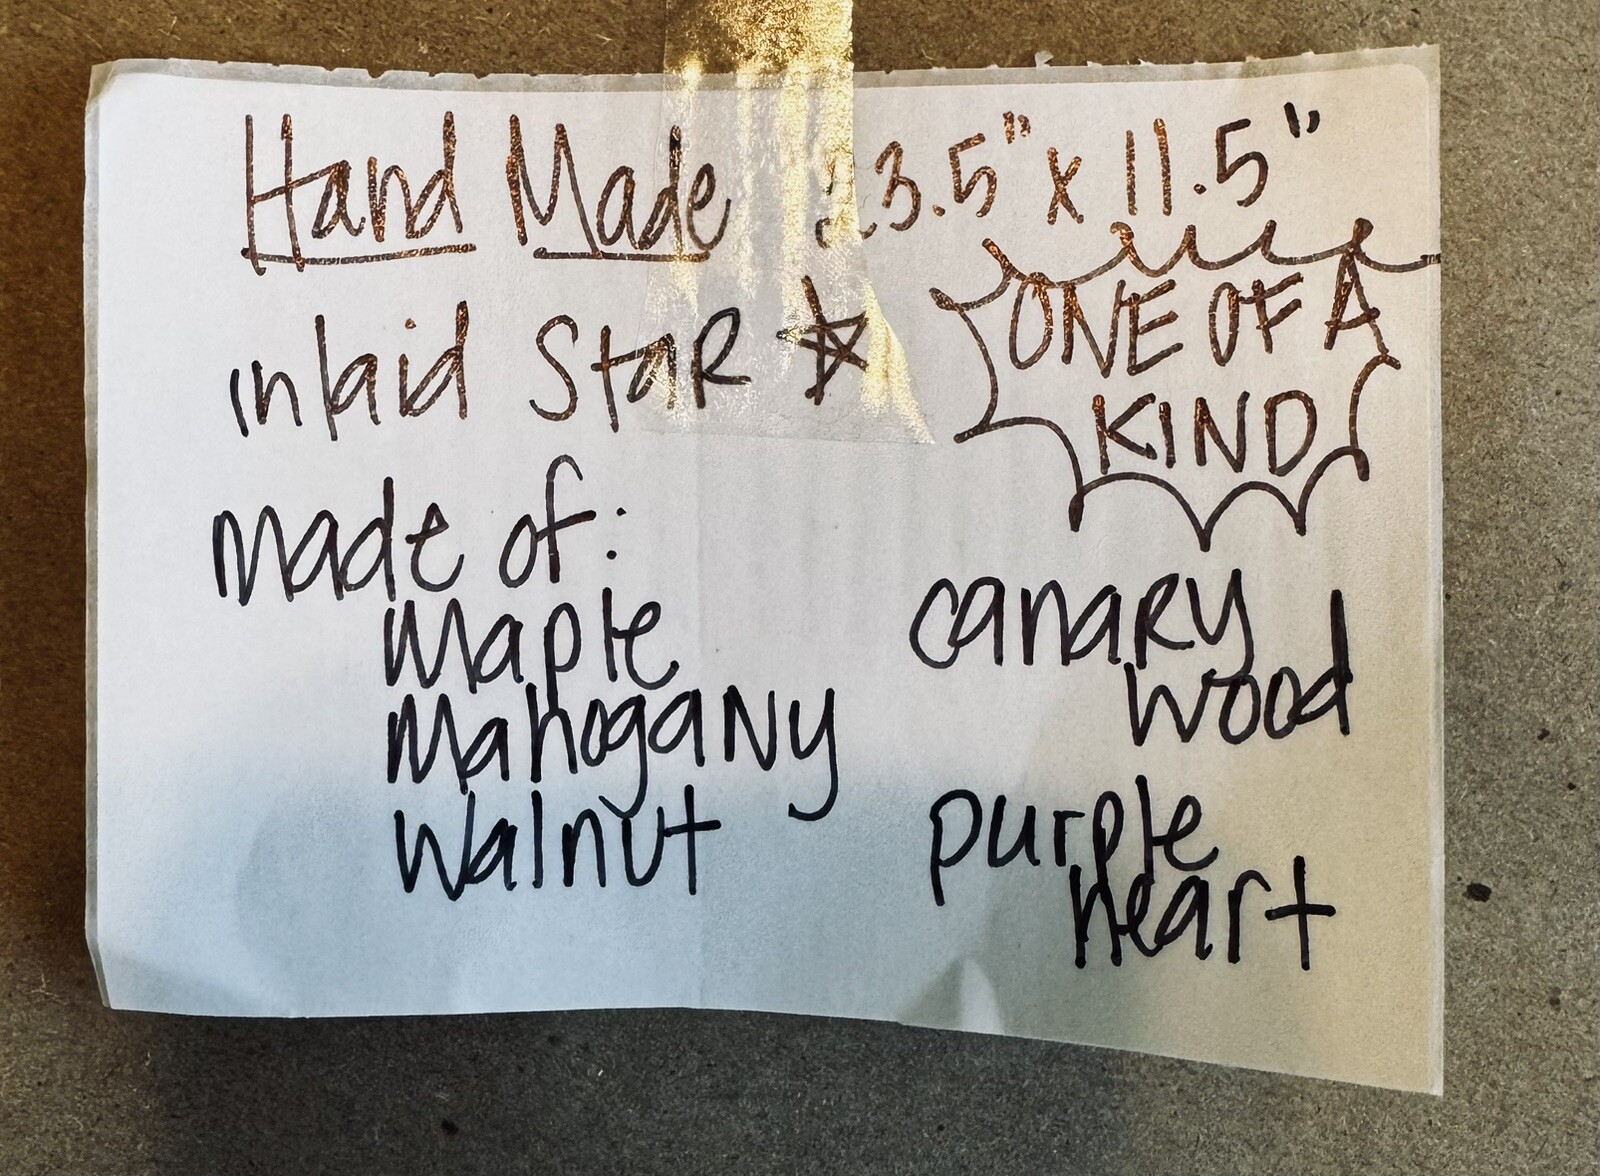 Hand Made 23.5" x 11.5"
inlaid StaR ☆
ONE OF A
KIND
made of:
Maple
Mahogany
Walnut
canaRy
wood
purple
heart